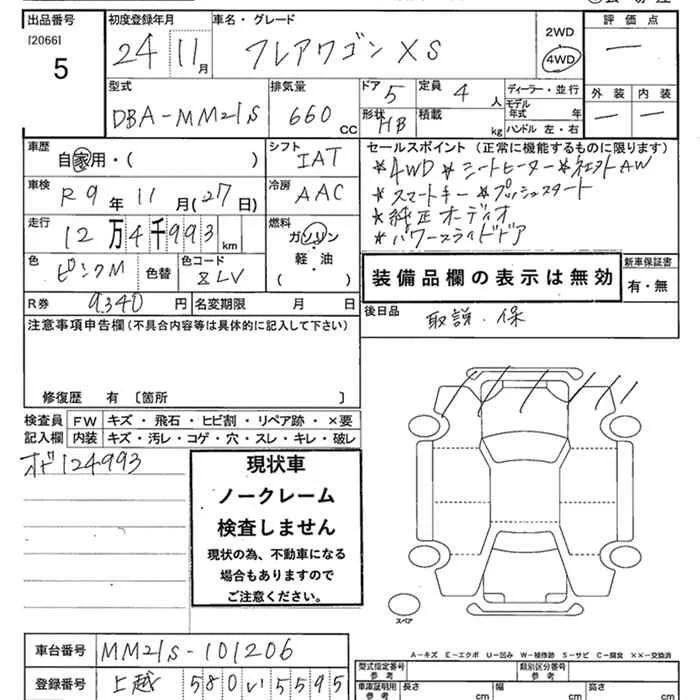 出品番号
[2066]
5
初度登録年月
24 11月
車名・グレード
フレアワゴン XS
2WD
4WD
評価点
―
型式
DBA-MM21S
排気量
660 cc
ドア
5
形状
HB
定員
4 人
積載
kg
ディーラー・並行
モデル年式 年
ハンドル 左・右
外装 内装
― ―
車歴
自家用・( )
シフト
IAT
セールスポイント(正常に機能するものに限ります)
*4WD *シートヒーター *社外AW
*スマートキー *プッシュスタート
*純正オーディオ
*パワースライドドア
車検
R9年11月(27日)
冷房
AAC
走行
12万4千993km
燃料
ガソリン
軽・油
( )
色
ピンクM
色替
色コード
ZLV
装備品欄の表示は無効
新車保証書
有・無
R券
9,340円
名変期限 月 日
後日品
取説・保
注意事項申告欄(不具合内容等は具体的に記入して下さい)
修復歴 有 〔箇所 〕
検査員記入欄
FW キズ・飛石・ヒビ割・リペア跡・×要
内装 キズ・汚レ・コゲ・穴・スレ・キレ・破レ
オド124993
現状車
ノークレーム
検査しません
現状の為、不動車になる
場合もありますので
ご注意ください。
スペア
A-キズ E-エクボ U-凹み W-補修跡 S-サビ C-腐食 ××-交換済
車台番号
MM21S-101206
登録番号
上越 580 い 5595
型式指定番号
参考
類別区分番号
参考
車庫証明用
参考
長さ cm
幅 cm
高さ cm